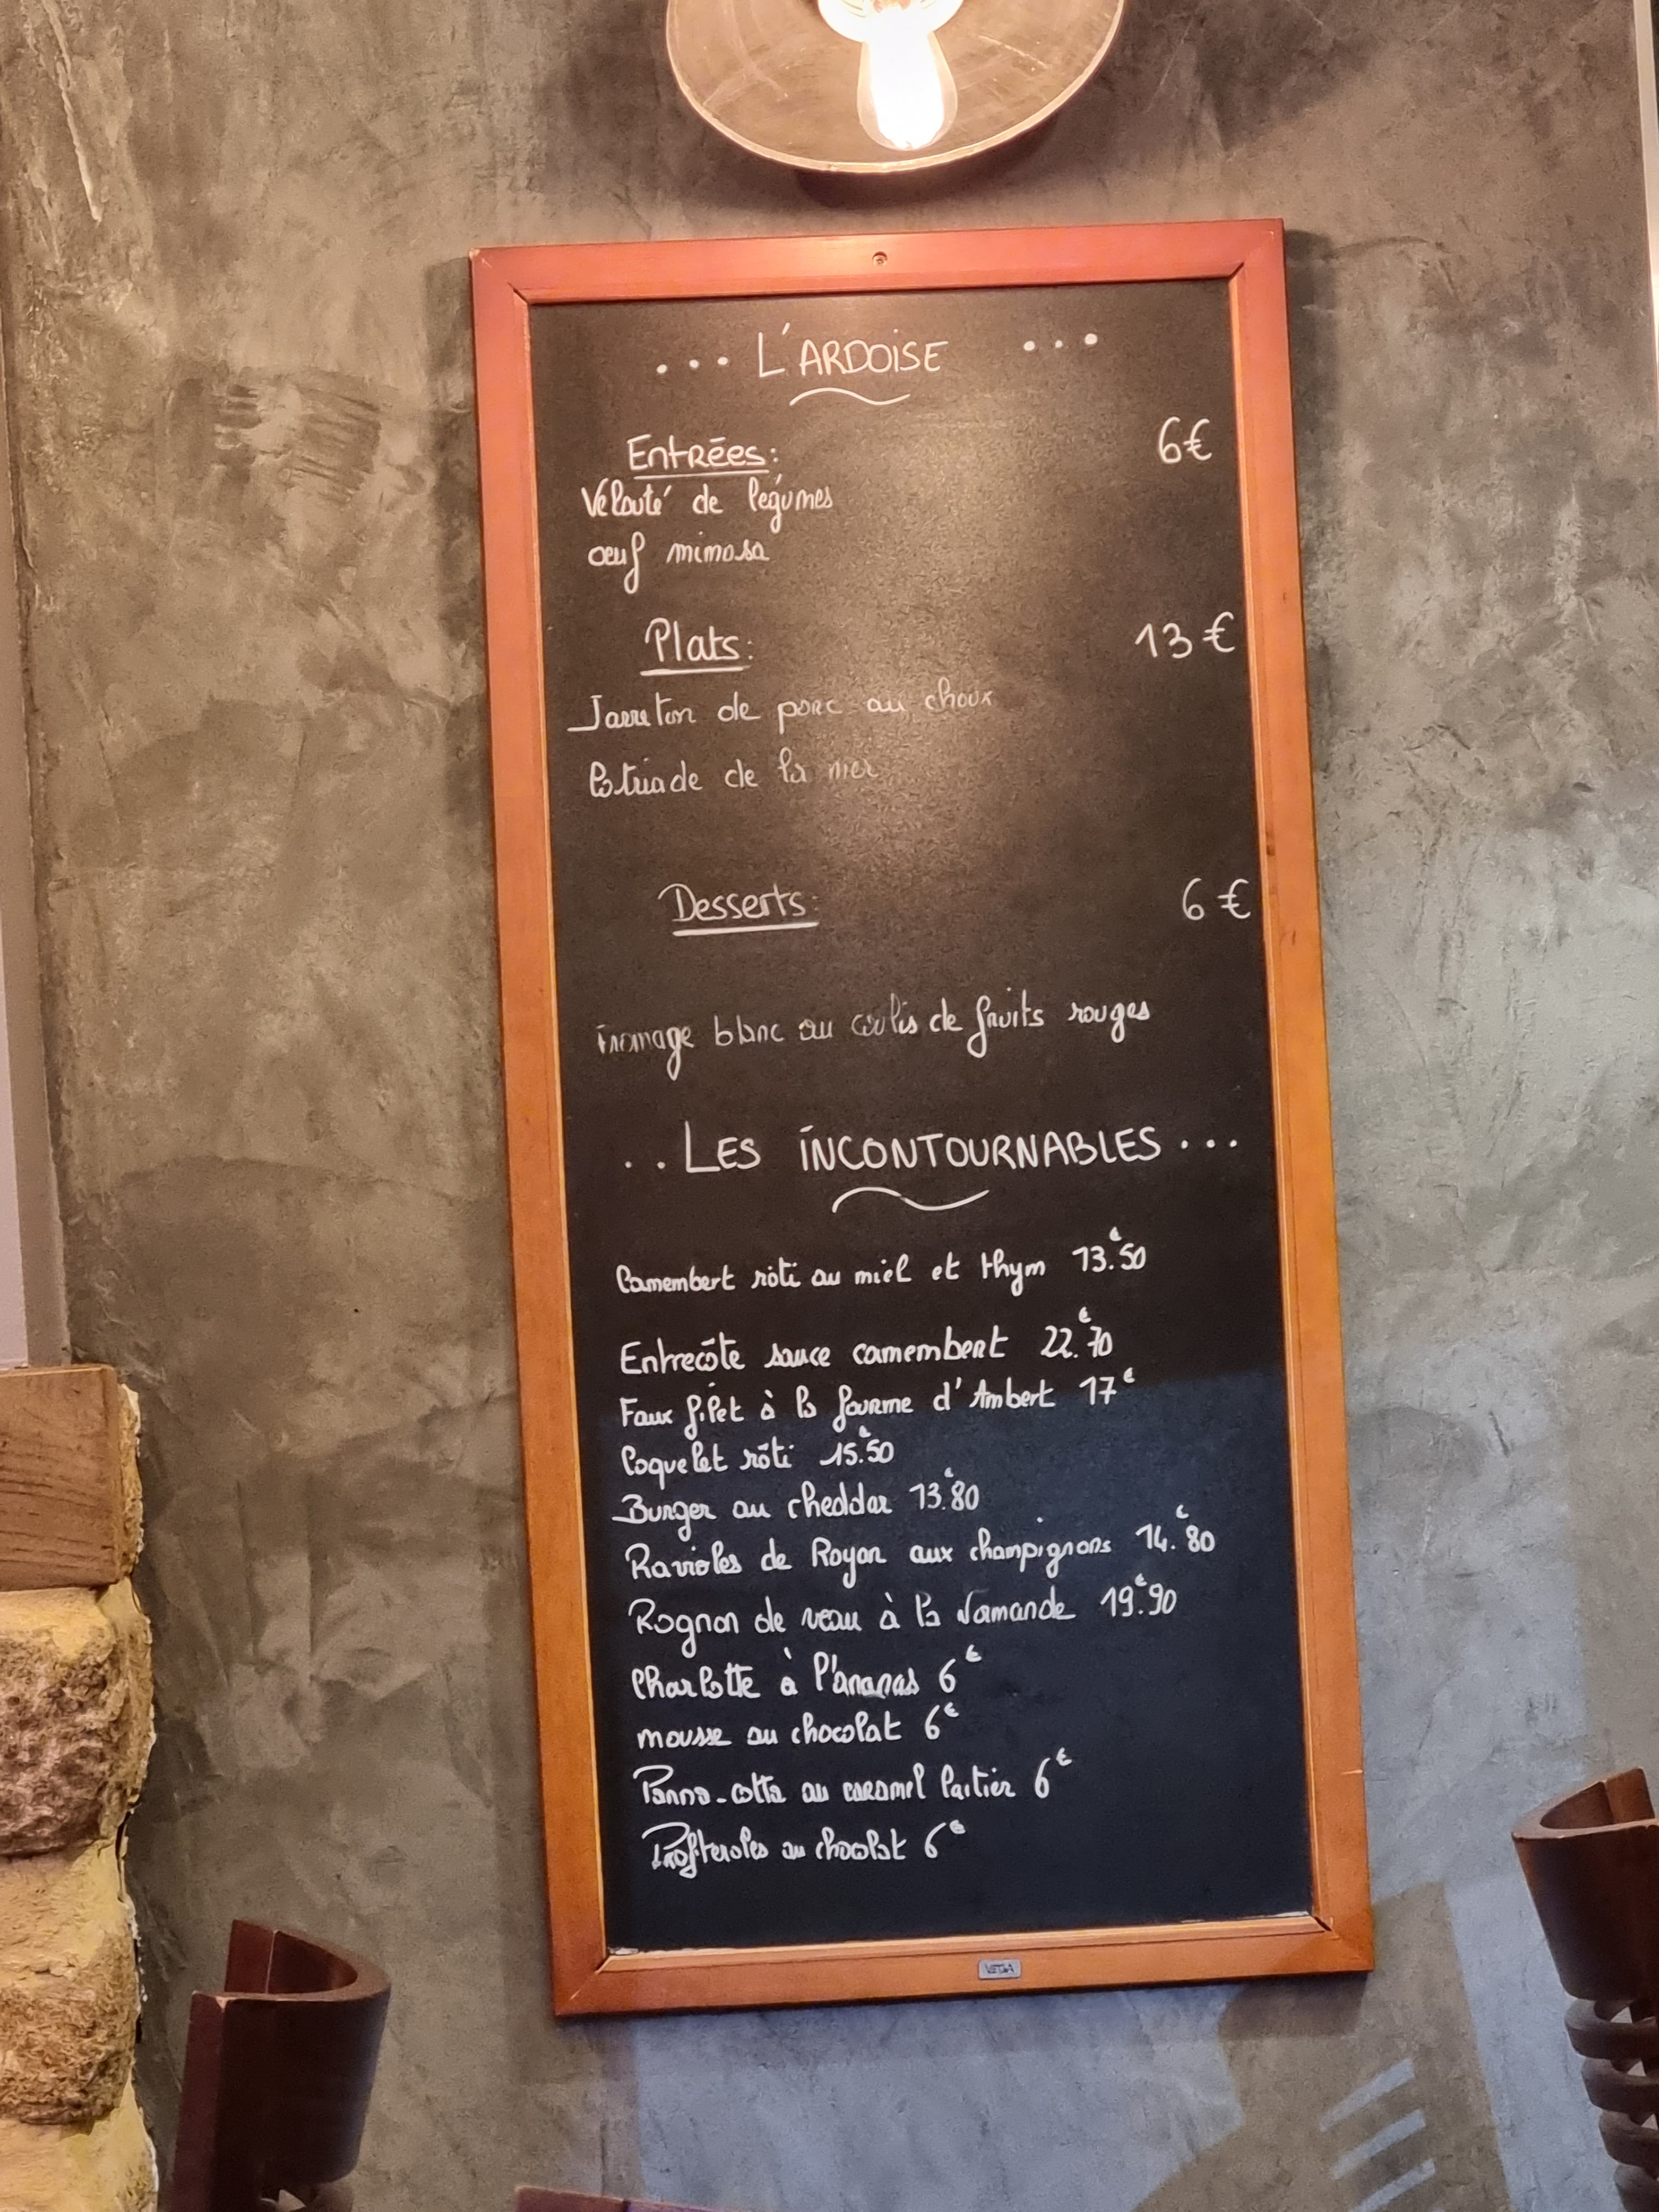 ... L'ARDOISE ...
Entrées: 6€
Velouté de légumes
oeuf mimosa
Plats: 13€
Jarreton de porc au choux
Cotriade de la mer
Desserts: 6€
Fromage blanc au coulis de fruits rouges
.. LES INCONTOURNABLES ...
Camembert rôti au miel et thym 13.€50
Entrecôte sauce camembert 22.€70
Faux filet à la fourme d'Ambert 17€
Coquelet rôti 15.€50
Burger au cheddar 13.€80
Ravioles de Royan aux champignons 14.€80
Rognon de veau à la Normande 19.€90
Charlotte à l'ananas 6€
mousse au chocolat 6€
Panna-cotta au caramel laitier 6€
Profiteroles au chocolat 6€
VEGA